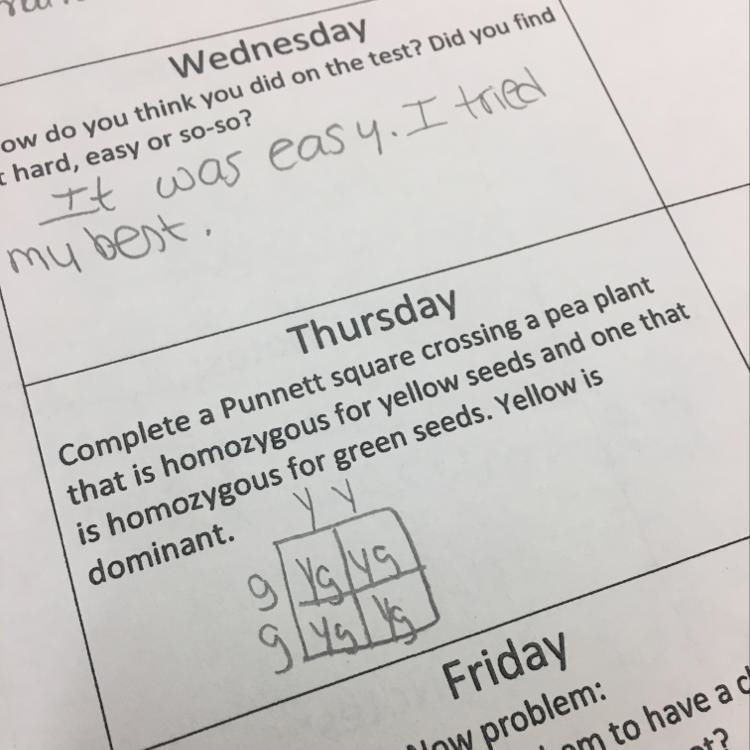 Wednesday
ow do you think you did on the test? Did you find
t hard, easy or so-so?
It was easy. I tried
my best.
Thursday
Complete a Punnett square crossing a pea plant
that is homozygous for yellow seeds and one that
is homozygous for green seeds. Yellow is
dominant.
Y Y
g Yg Yg
g Yg Yg
Friday
Now problem:
em to have a